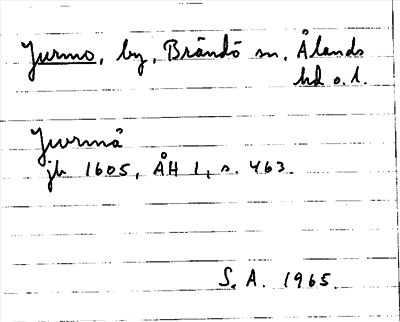 Jurmo, by, Brändö sn. Ålands
hd o. l.
Jwrmå
jb 1605, ÅH 1, s. 463.
S. A. 1965.